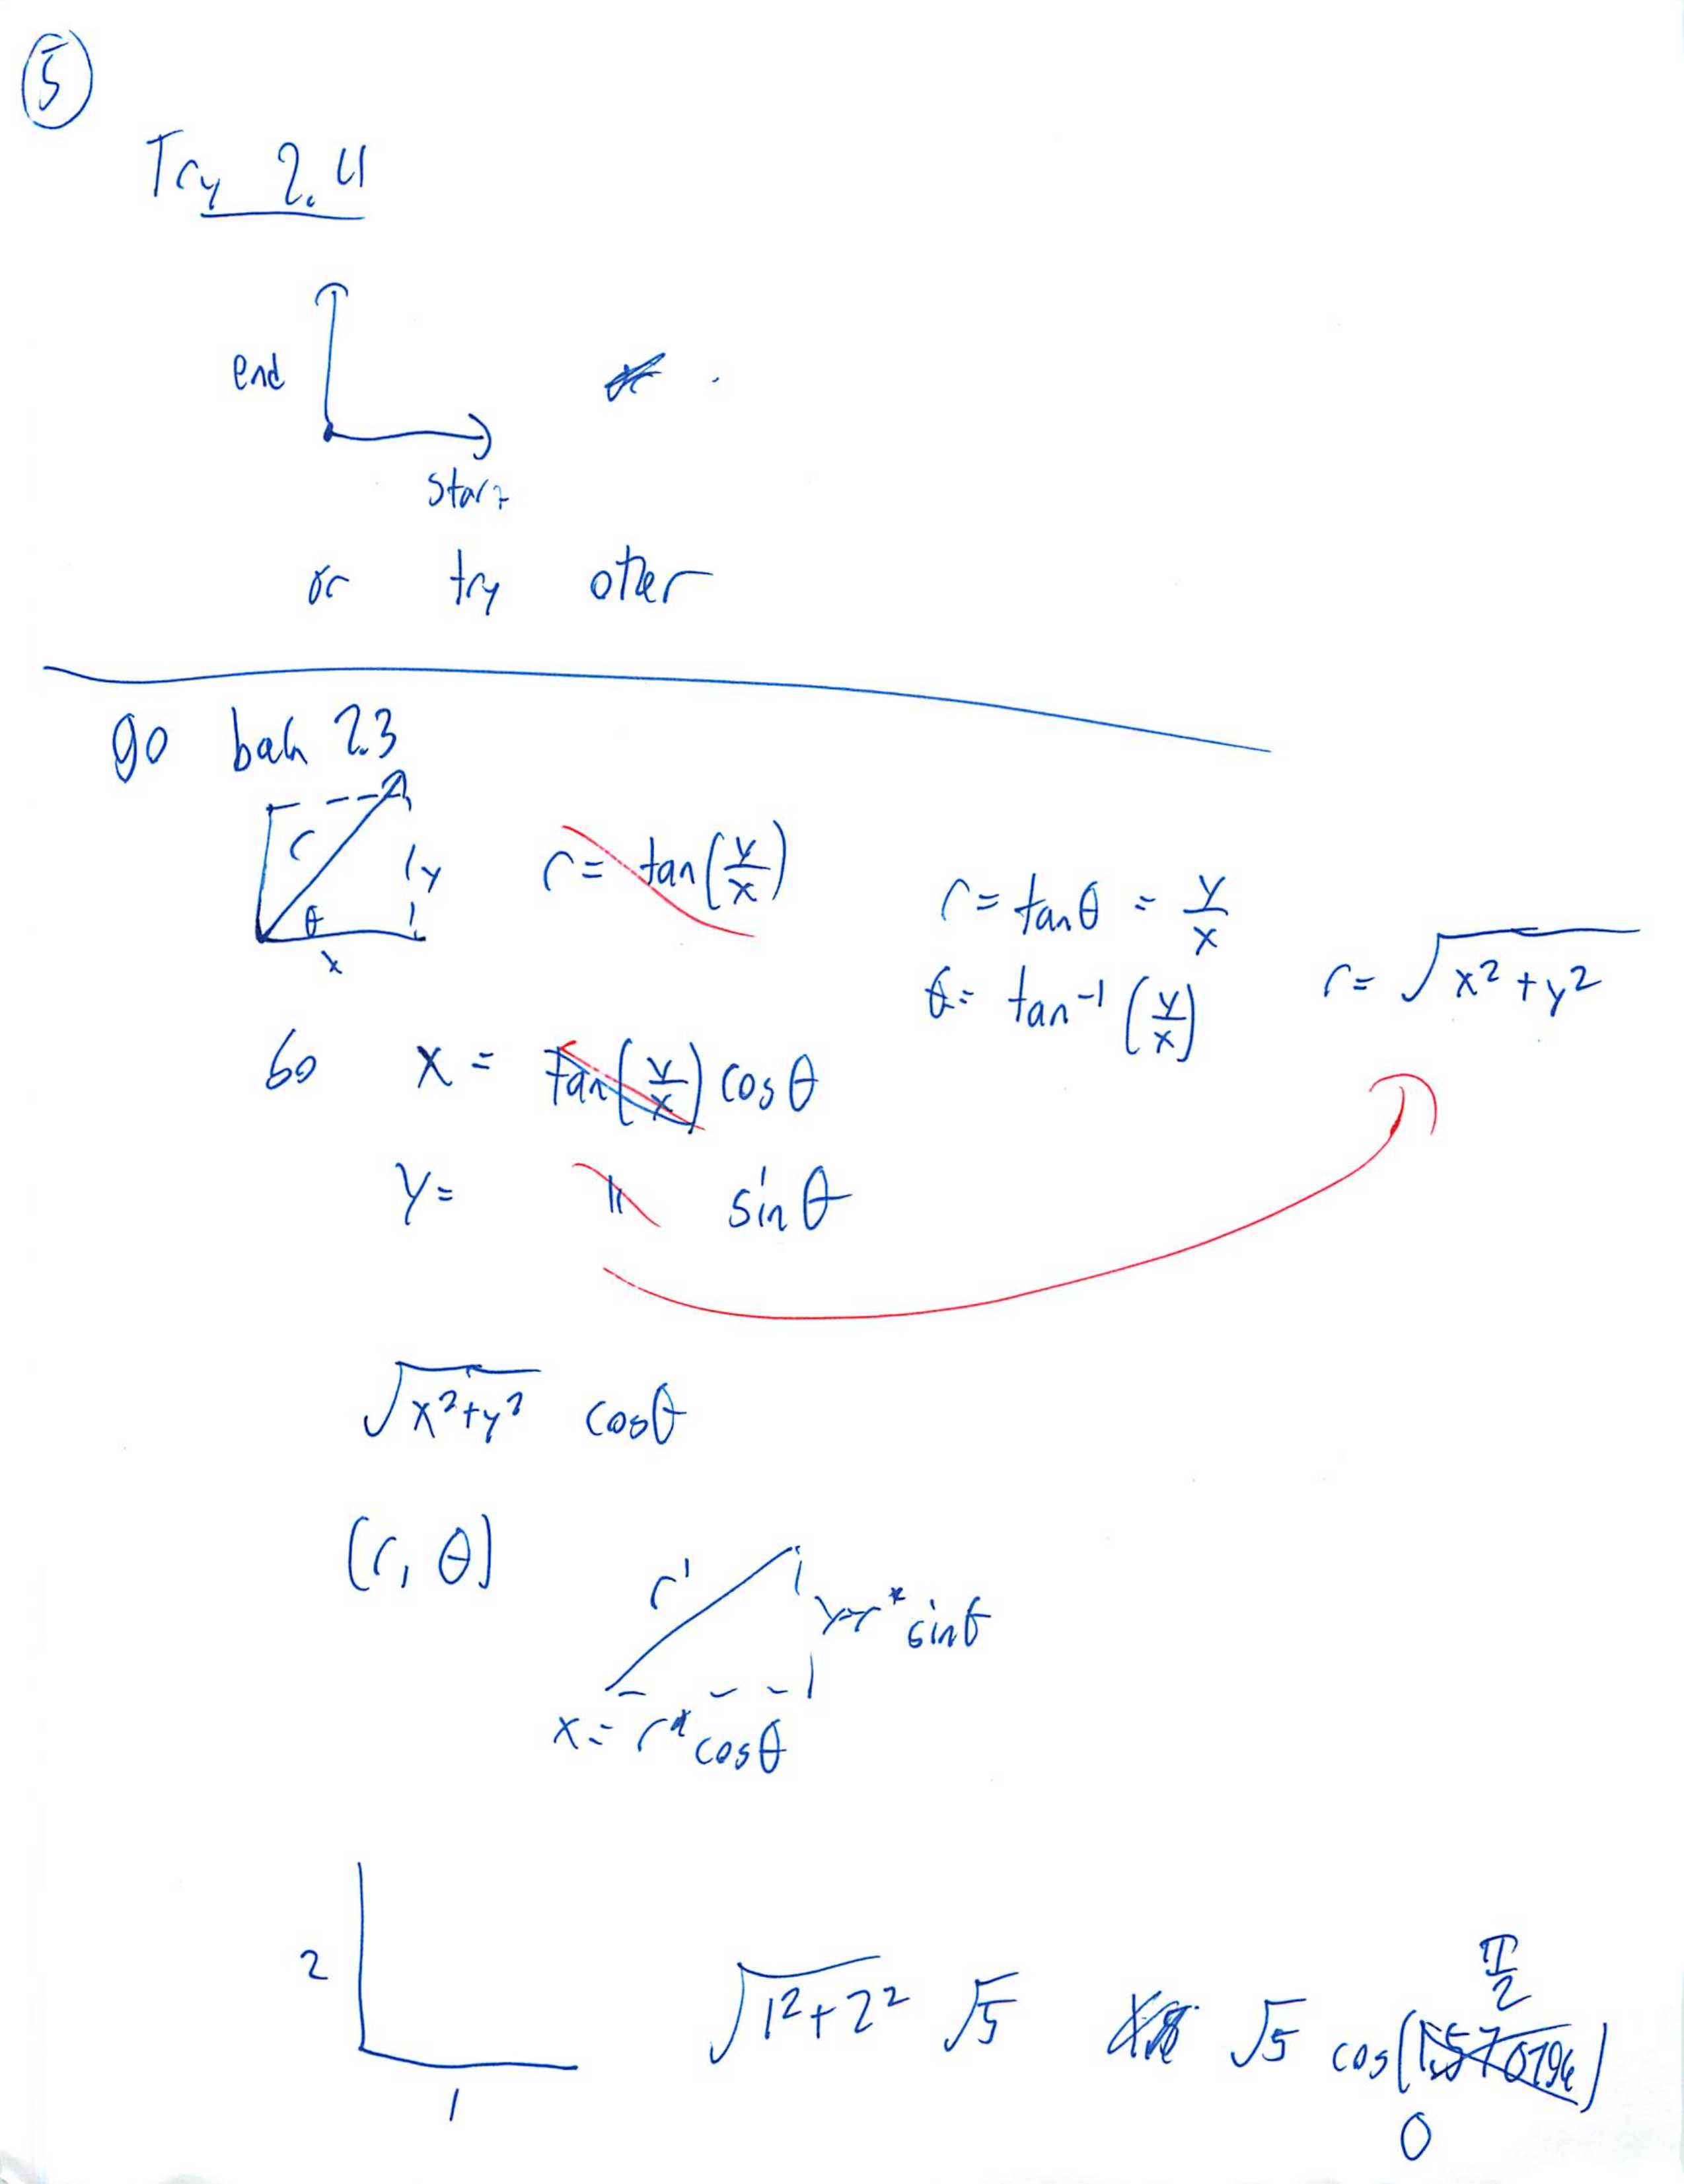 5
Try 2.4
end
start
or try other
go bak 2.3
r
y
θ
x
r = tan(y/x)
r = tanθ = y/x
θ = tan⁻¹(y/x)
r = √(x²+y²)
So x = tan(y/x) cosθ
y = " sinθ
√(x²+y²) cosθ
(r, θ)
r'
y=r* sinθ
x = r* cosθ
2
1
√(1²+2²) √5 √5 cos(1.570796)
π/2
0